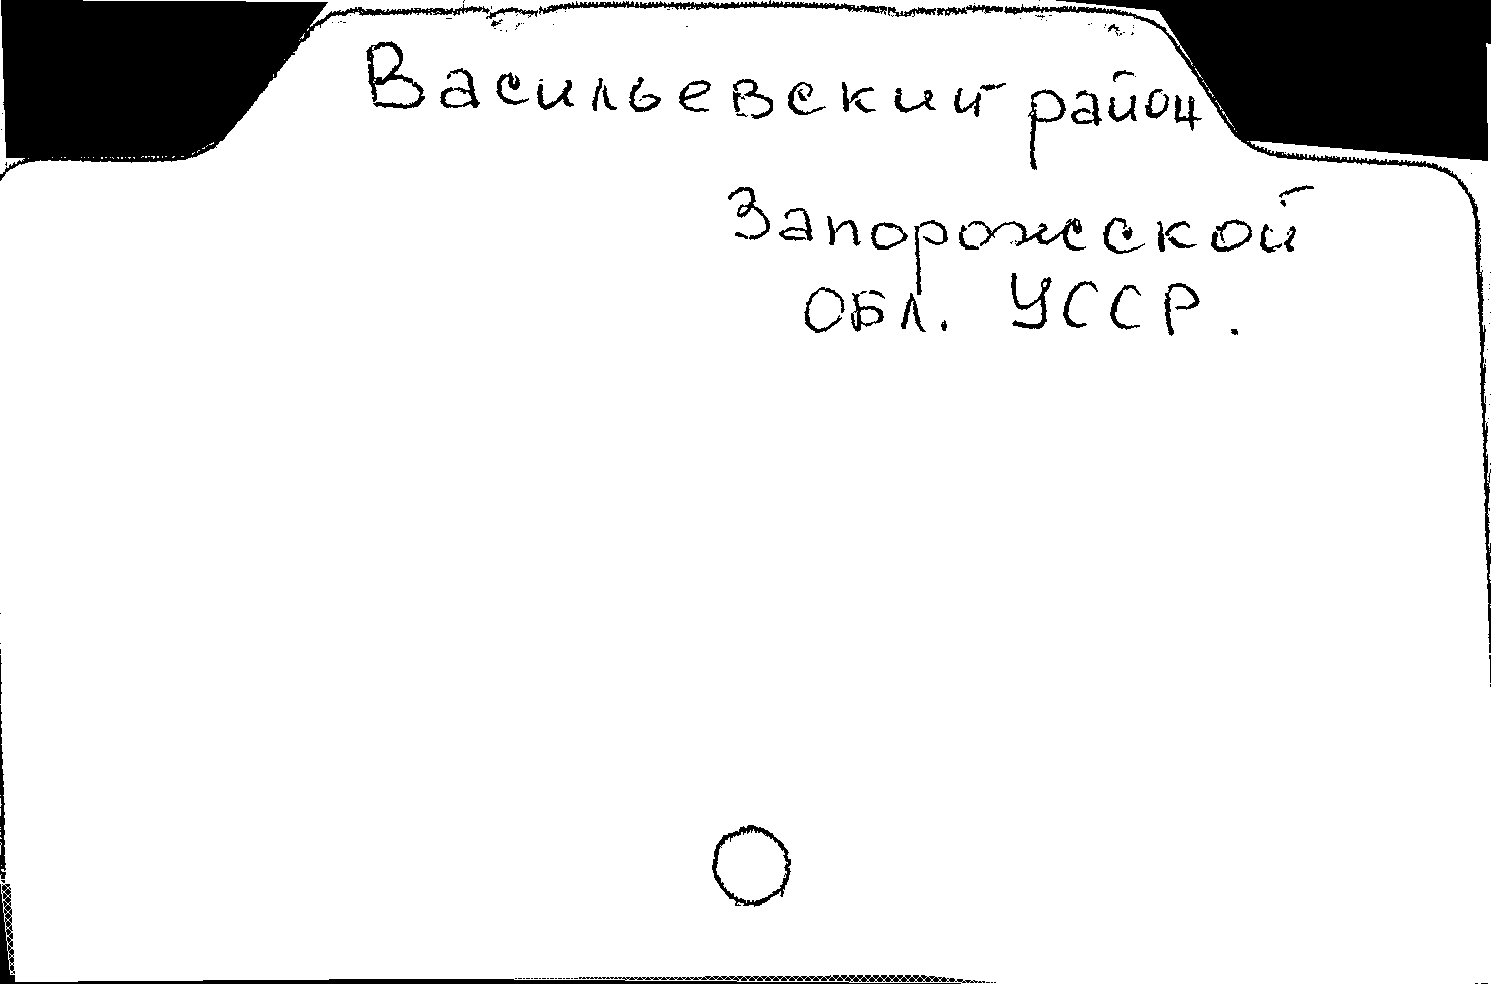 Васильевский район
Запорожской
обл. УССР.